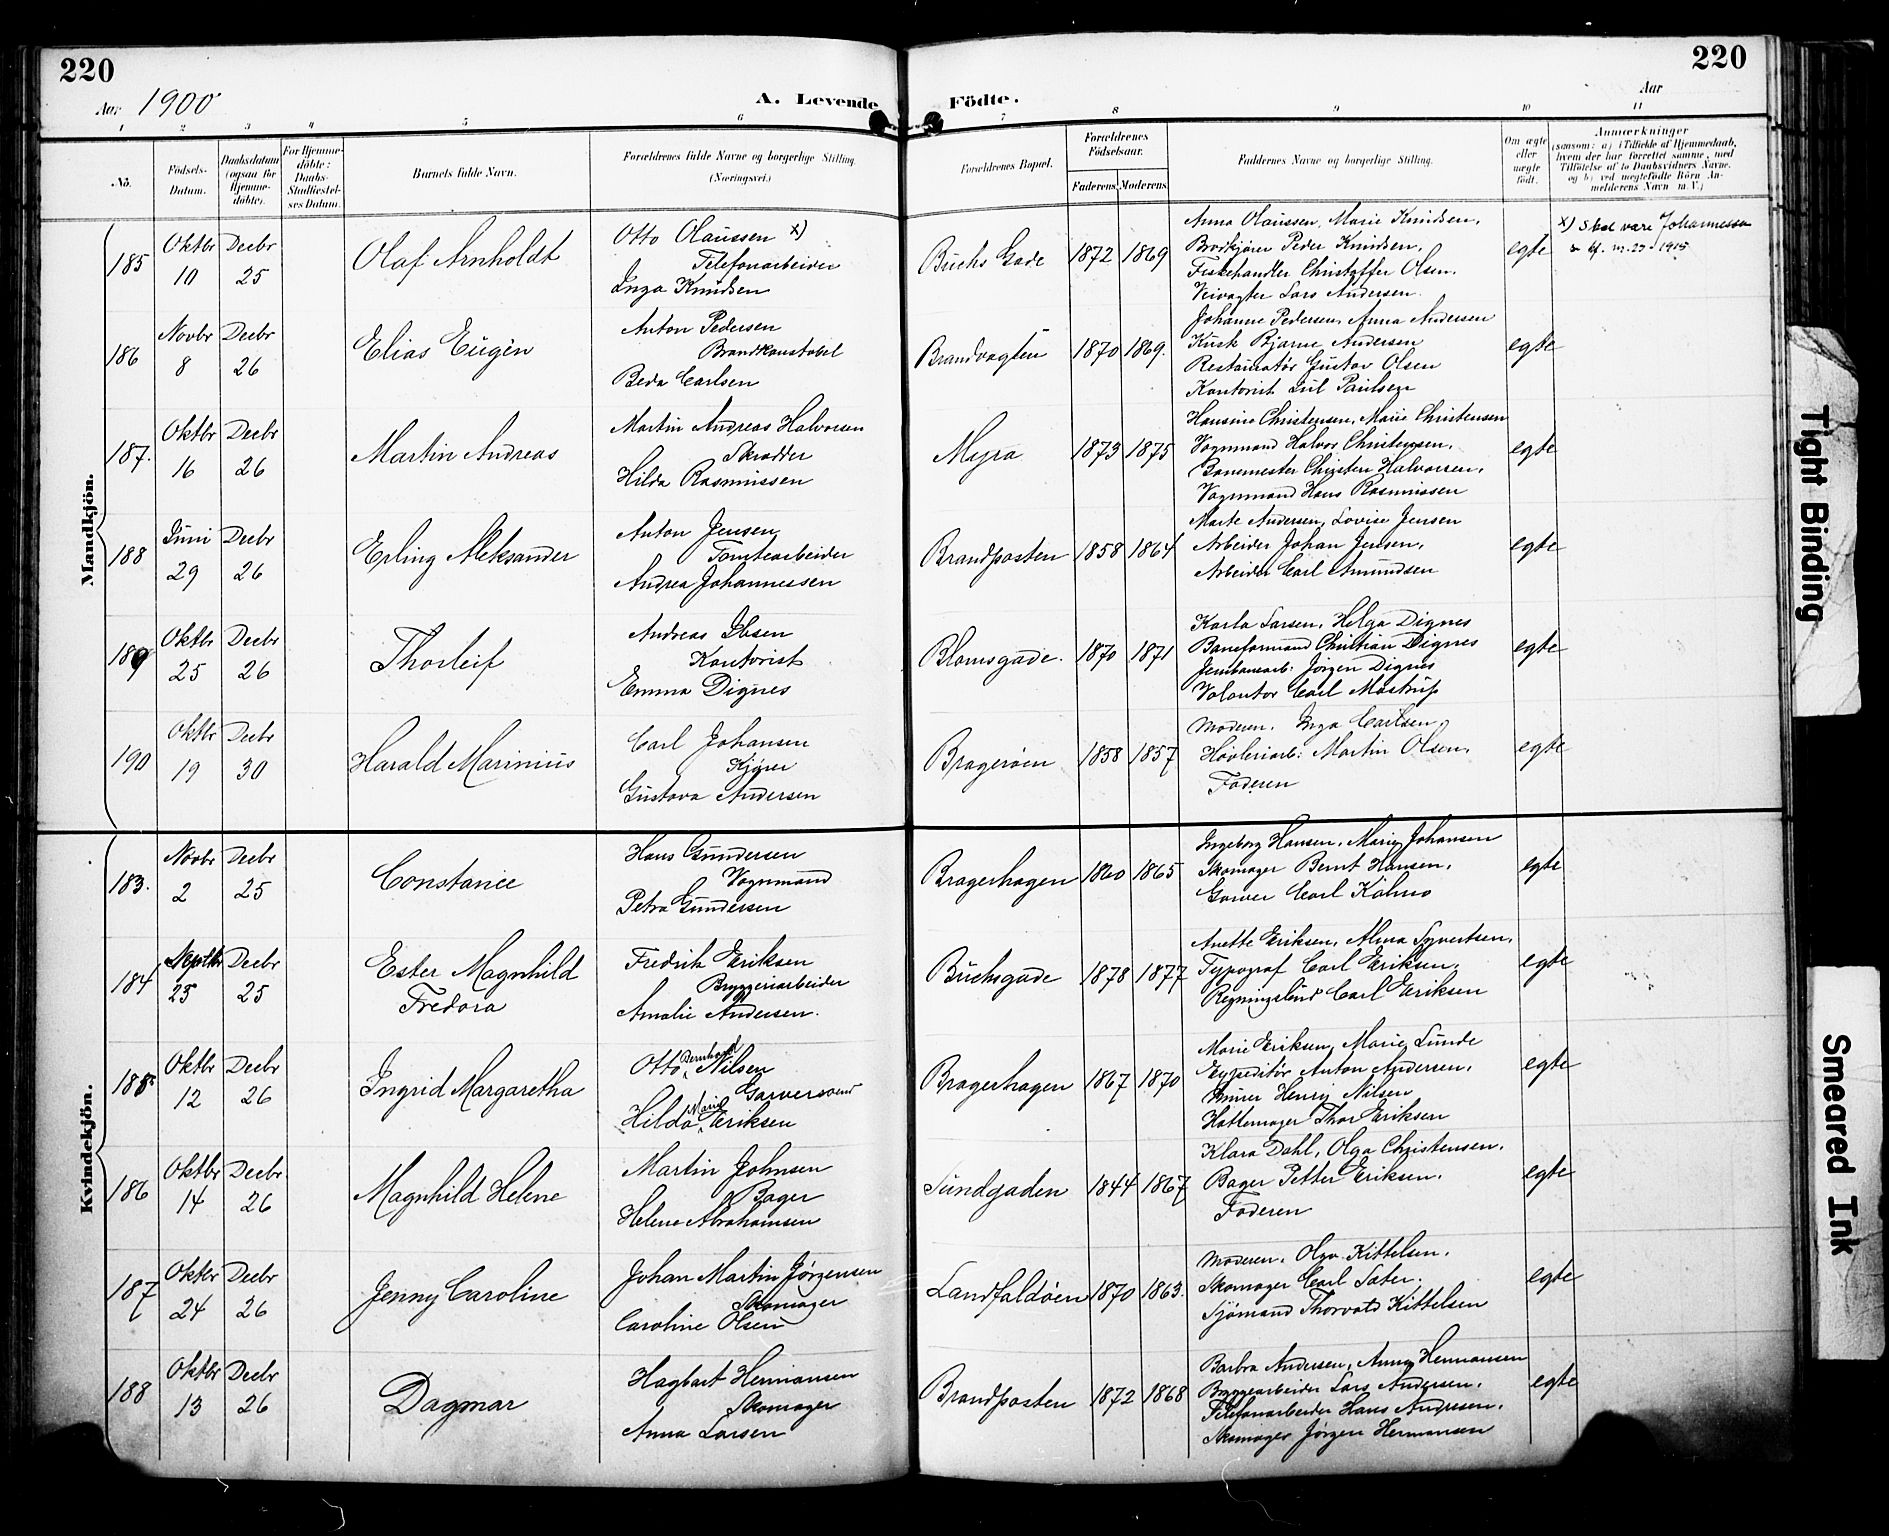 220
220
Aar 1900
A. Levende Födte.
Aar
1 2 3 4 5 6 7 8 9 10 11
No.
Födsels-Datum.
Daabsdatum (ogsaa for Hjemme-döbte).
For Hjemme-döbte: Daabs-Stadfæstel-ses Datum.
Barnets fulde Navn.
Forældrenes fulde Navne og borgerlige Stilling. (Næringsvei.)
Forældrenes Bopæl.
Forældrenes Födselsaar.
Faderens Moderens
Faddernes Navne og borgerlige Stilling.
Om ægte eller uægte födt.
Anmærkninger
(saasom: a) i Tilfælde af Hjemmedaab, hvem der har forrettet samme, med Tilföielse af to Daabsvidners Navne, og b) ved uægtefödte Börn An-melderens Navn m. V.)
Mandkjön.
185 Oktbr 10 Decbr 25
Olaf Arnholdt
Otto Olaussen x)
Telefonarbeider
Inga Knudsen
Buchs Gade 1872 1869
Anna Olaussen, Marie Knudsen,
Brødkjører Peder Knudsen,
Fiskehandler Christoffer Olsen,
Veivogter Lars Andersen.
egte
x) Skal være Johannessen
186 Novbr 8 Decbr 26
Elias Eugèn
Anton Pedersen
Brandkonstabel
Beda Carlsen
Brandvagten 1870 1869.
Johanne Pedersen, Anna Andersen
Kusk Bjarne Andersen
Restauratør Gustav Olsen
Kontorist Paulsen
egte
187. Oktbr 16 Decbr 26
Martin Andreas
Martin Andreas Halvorsen
Skrædder
Hilda Rasmussen
Myra 1873 1875
Hansine Christensen, Marie Christensen
Vognmand Halvor Christensen,
Banemester Christen Halvorsen,
Vognmand Hans Rasmussen
egte
188 Juni 29 Decbr 26
Erling Aleksander
Anton Jensen
Tomtearbeider
Andrea Johannessen
Brandposten 1858 1864
Marte Andersen, Lovise Jensen
Arbeider Johan Jensen,
Arbeider Carl Amundsen
egte
189 Oktbr 25 Decbr 26
Thorleif
Andreas Ibsen
Kontorist
Emma Dignes
Blomsgade. 1870 1871
Karla Larsen, Helga Dignes
Baneformand Christian Dignes
Jernbanearb: Jörgen Dignes
Volontør Carl Mostrup
egte
190 Oktbr 19 Decbr 30
Harald Marinius
Carl Johansen
Kjører
Gustava Andersen
Bragerøen 1858 1857
Moderen, Inga Carlsen,
Høvleriarb: Martin Olsen,
Faderen
egte
Kvindekjön.
183. Novbr 2 Decbr 25
Constance
Hans Gundersen
Vognmand
Petra Gundersen
Bragerhagen 1860 1865
Ingeborg Hansen, Marie Johansen
Skomager Bernt Hansen,
Garver Carl Kolmo
egte
184 Septbr 25 Decbr 25
Ester Magnhild
Fredora
Fredrik Eriksen
Bryggeriarbeider
Amalie Andersen.
Buchsgade 1878 1877
Anette Eriksen, Alma Syvertsen,
Typograf Carl Eriksen,
Regningsbud Carl Eriksen
egte
185 Oktbr 12 Decbr 26
Ingrid Margaretha
Otto Bernhard Nilsen
Garversvend
Hilda Marie Eriksen
Bragerhagen 1867 1870
Marie Eriksen, Marie Lunde
Expeditør Anton Andersen,
Murer Henrij Nilsen
Hattemager Thor Eriksen
egte
186 Oktbr 14 Decbr 26
Magnhild Helene
Martin Johnsen
Bager
Helene Abrahamsen
Sundgaden 1844 1867
Klara Dahl, Olga Christensen,
Bager Petter Eriksen,
Faderen
egte
187 Oktbr 24 Decbr 26
Jenny Caroline
Johan Martin Jørgensen
Skomager
Caroline Olsen
Landfaldöen 1870 1863.
Moderen, Olga Kittelsen,
Skomager Carl Sater,
Sjømand Thorvald Kittelsen
egte
188 Oktbr 13 Decbr 26
Dagmar
Hagbart Hermansen
Skomager
Anna Larsen
Brandposten 1872 1868
Barbra Andersen, Anna Hermansen
Bryggearbeider Lars Andersen,
Telefonarbeider Hans Andresen,
Skomager Jörgen Hermansen
egte
Tight Binding
Smeared Ink